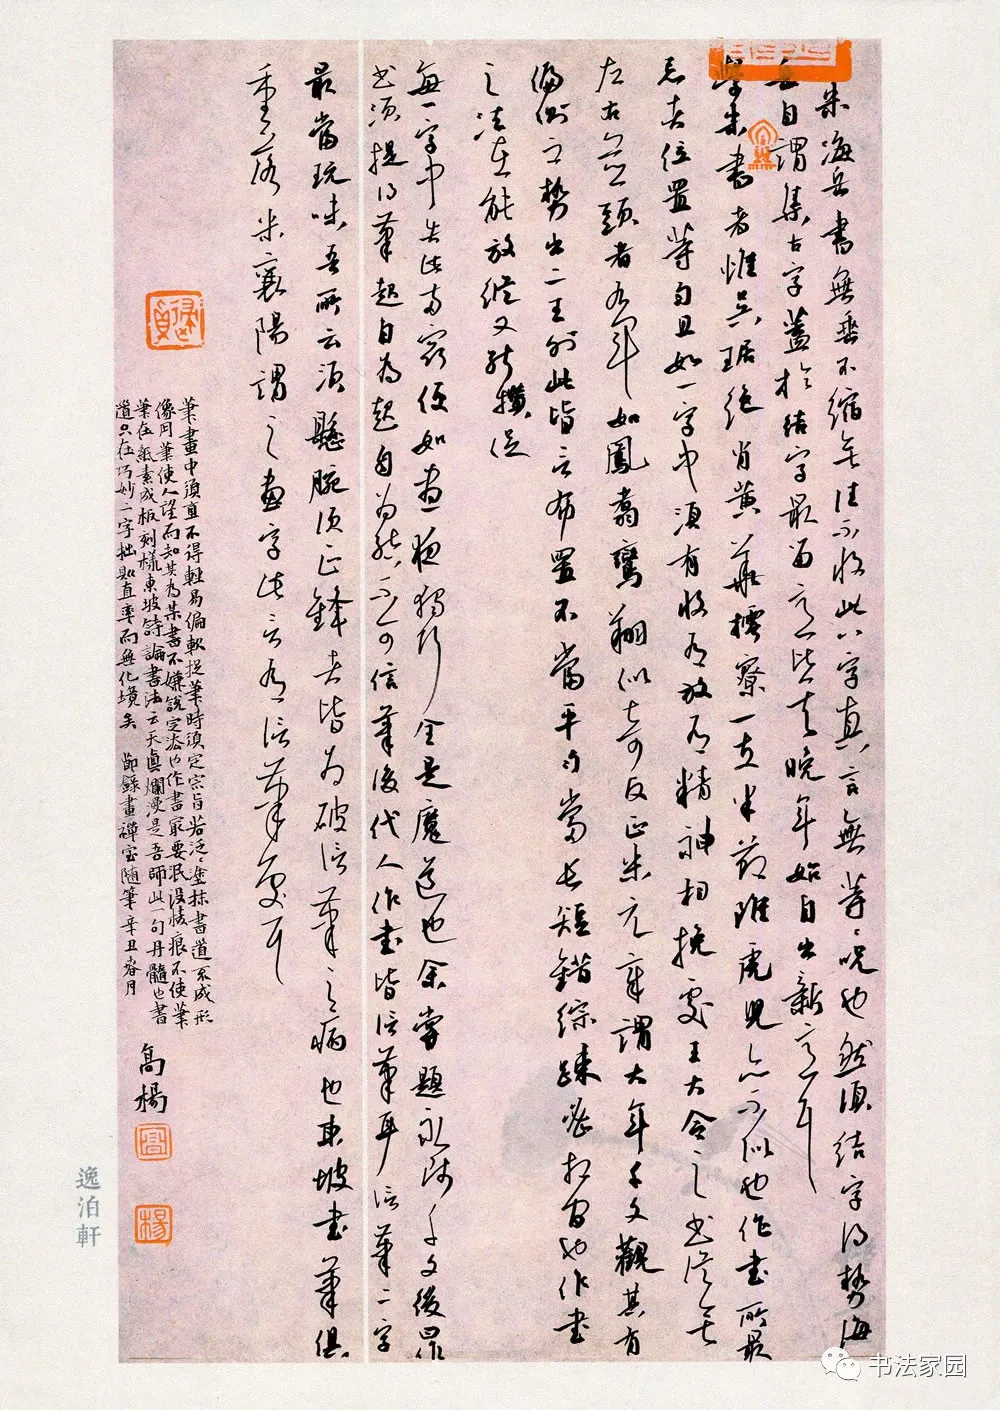 米海岳書無垂不縮無往不收此八字真言無等等呪也然須結字得勢海
岳自謂集古字蓋於結字最留意比其晚年始自出新意耳
學米書者惟吳琚絕肖黃華樗寮一支半節雖虎兒亦不似也作書所最
忌者位置等勻且如一字中須有收有放有精神相挽處王大令之書從無
左右並頭者右軍如鳳翥鸞翔似奇反正米元章謂大年千文觀其有
偏側之勢出二王外此皆言布置不當平勻當長短錯綜疎密相間也作書
之法在能放縱又能攢捉
每一字中失此兩竅便如晝夜獨行全是魔道也余嘗題永師千文後曰作
書須提得筆起自為起自為結不可信筆後代人作書皆信筆耳信筆二字
最當玩味吾所云須懸腕須正鋒者皆為破信筆之病也東坡書筆俱
重落米襄陽謂之畫字此言有信筆處耳
筆畫中須直不得輕易偏軟捉筆時須定宗旨若泛泛塗抹書道不成形
像用筆使人望而知其為某書不嫌說定法也作書最要泯沒棱痕不使筆
筆在紙素成板刻樣東坡詩論書法云天真爛漫是吾師此一句丹髓也書
道只在巧妙二字拙則直率而無化境矣 節錄畫禪室隨筆辛丑春月
高楊
高
楊
逸泊軒
书法家园